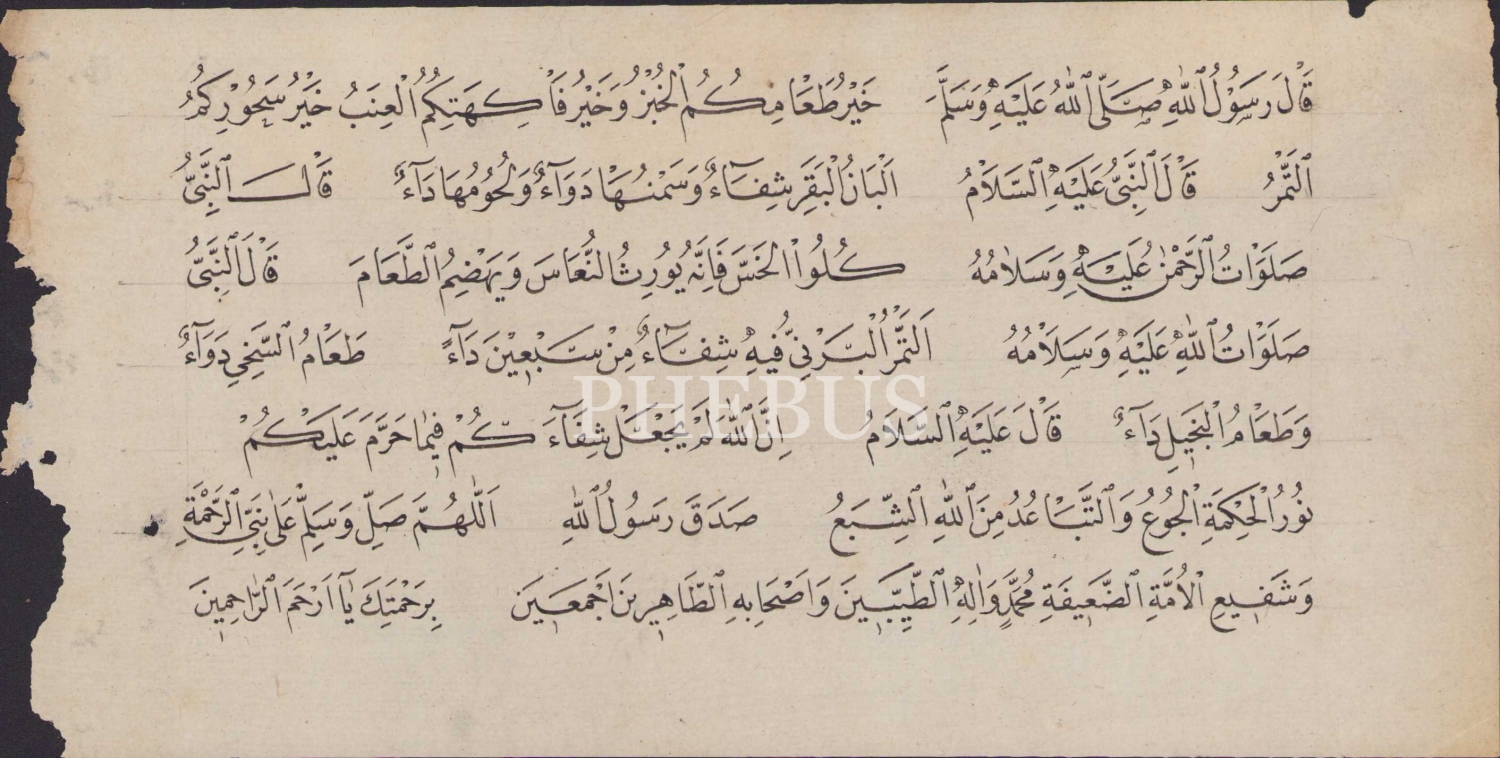 قَالَ رَسُوْلُ اللهِ صَلَّى اللهُ عَلَيْهِ وَسَلَّمَ خَيْرُ طَعَامِكُمُ الْخُبْزُ وَخَيْرُ فَاكِهَتِكُمُ الْعِنَبُ خَيْرُ سَحُوْرِكُمُ
التَّمْرُ قَالَ النَّبِيُّ عَلَيْهِ السَّلَامُ اَلْبَانُ الْبَقَرِ شِفَاءٌ وَسَمْنُهَا دَوَآءٌ وَلُحُومُهَا دَآءٌ قَالَ النَّبِيُّ
صَلَوَاتُ الرَّحْمٰنِ عَلَيْهِ وَسَلَامُهُ كُلُوا الْخَسَّ فَاِنَّهُ يُورِثُ النُّعَاسَ وَيَهْضِمُ الطَّعَامَ قَالَ النَّبِيُّ
صَلَوَاتُ اللهِ عَلَيْهِ وَسَلَامُهُ اَلتَّمْرُ الْبَرْنِيُّ فِيهِ شِفَآءٌ مِنْ سَبْعِيْنَ دَآءً طَعَامُ السَّخِيِ دَوَآءٌ
وَطَعَامُ الْبَخِيلِ دَآءٌ قَالَ عَلَيْهِ السَّلَامُ اِنَّ اللهَ لَمْ يَجْعَلْ شِفَآءَ كُمْ فِيمَا حَرَّمَ عَلَيْكُمْ
نُورُ الْحِكْمَةِ الْجُوعُ وَالتَّبَاعُدُ مِنَ اللهِ الشِّبَعُ صَدَقَ رَسُولُ اللهِ اَللّٰهُمَّ صَلِّ وَسَلِّمْ عَلٰى نَبِيِّ الرَّحْمَةِ
وَشَفِيعِ الْاُمَّةِ الضَّعِيفَةِ مُحَمَّدٍ وَاٰلِهِ الطَّيِّبِينَ وَاَصْحَابِهِ الطَّاهِرِينَ اَجْمَعِينَ بِرَحْمَتِكَ يَآ اَرْحَمَ الرَّاحِمِينَ
PHEBUS